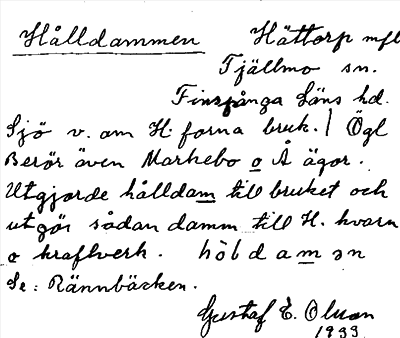 Hålldammen Hättorp mfl
Tjällmo sn.
Finspånga läns hd.
Sjö v. om H. forna bruk. / Ögl
Berör även Markebo o Å ägor.
Utgjorde hålldam till bruket och
utgör sådan damm till H. kvarn
o kraftverk. hòldaman
Se: Rännbäcken.
Gustaf E. Olson
1933